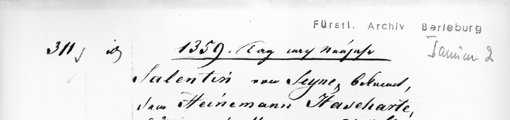 Fürstl. Archiv Berleburg
311, 1359. Tag nach Neujahr
Januar 2
Salentin von Seyne, bekennt,
dem Heinemann Haseharte,